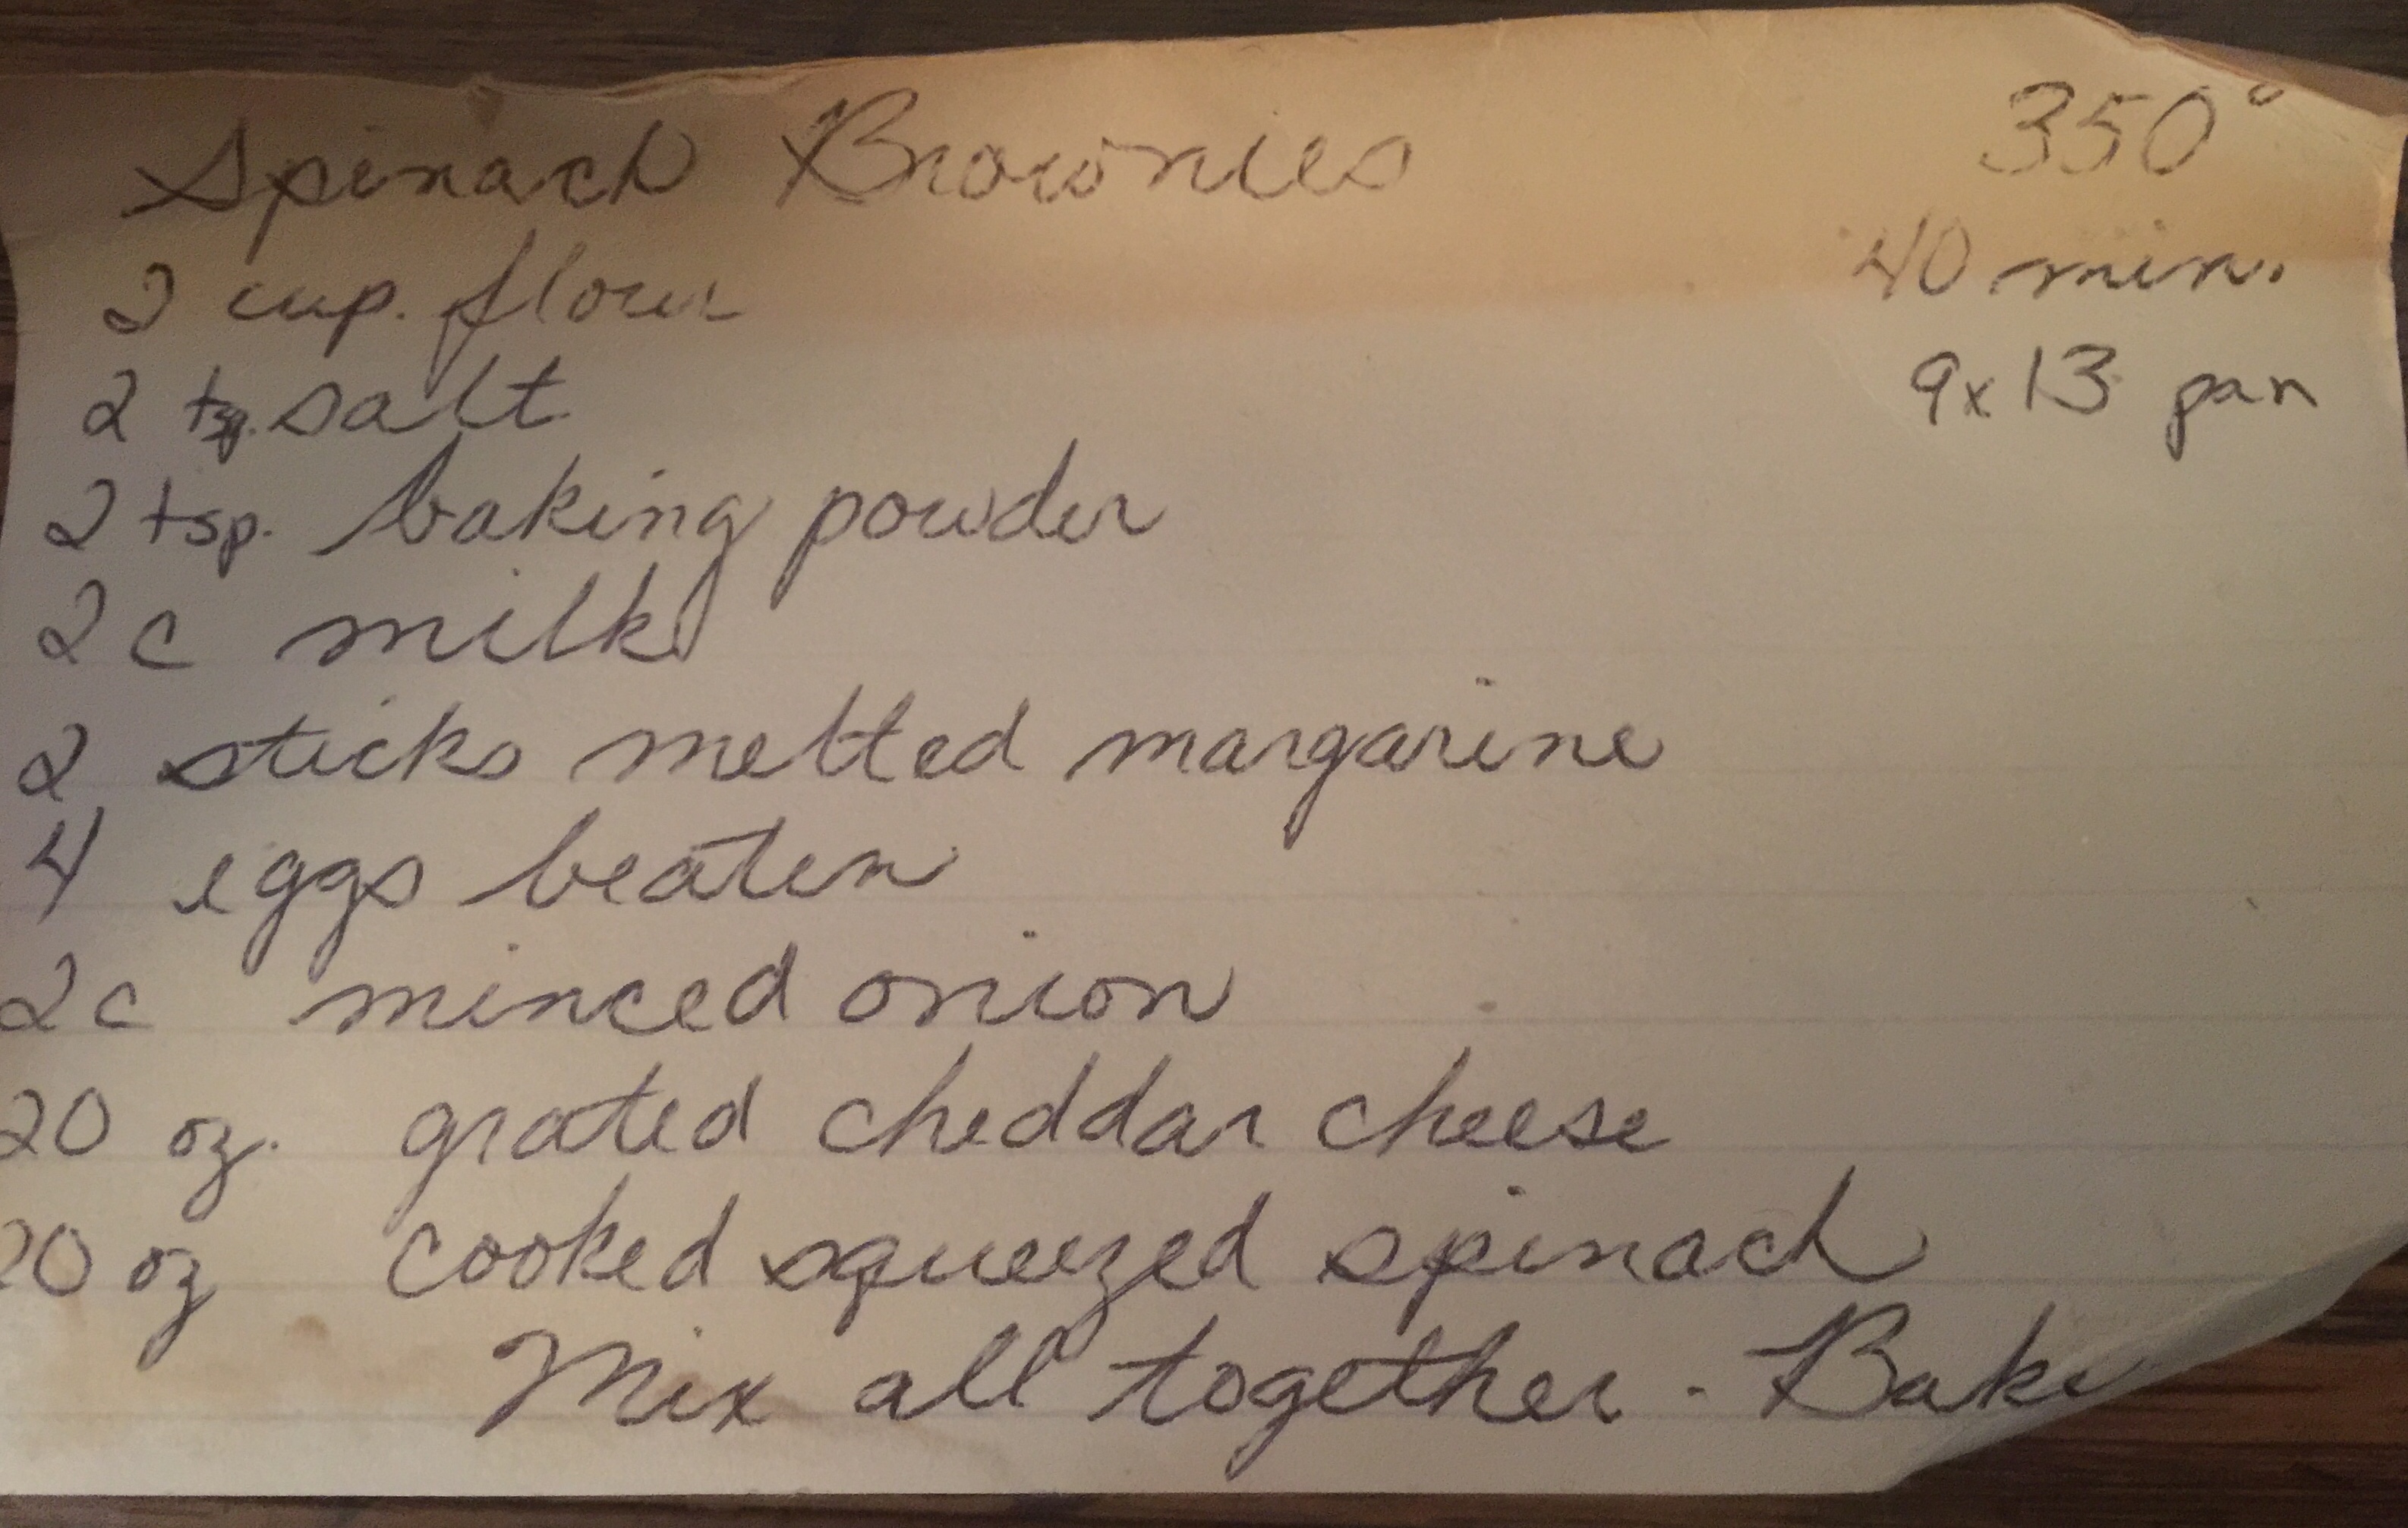 Spinach Brownies 350°
40 min.
2 cup. flour
9x13 pan
2 tsp. salt
2 tsp. baking powder
2 c milk
2 sticks melted margarine
4 eggs beaten
2c minced onion
20 oz. grated cheddar cheese
20 oz cooked squeezed spinach
Mix all together. Bake